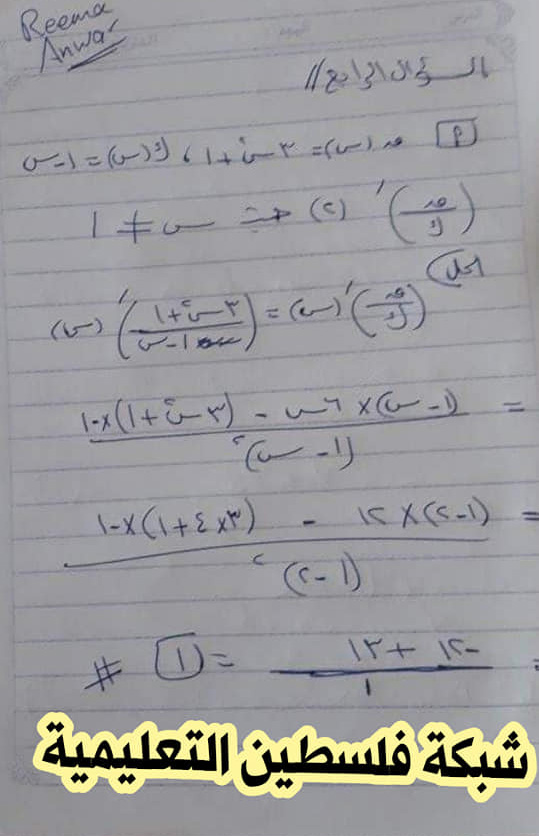 Reema
Anwar
السؤال الرابع //
[P] ق(س) = ٣س² + ١ ، ك(س) = ١ - س
(ق/ك)′ (٢) حيث س ≠ ١
الحل
(ق/ك)′ (س) = ((٣س² + ١)/(١ - س))′ (س)
= ((١ - س) × ٦س - (٣س² + ١) × -١)/(١ - س)²
= ((١ - ٢) × ١٢ - (٣ × ٤ + ١) × -١)/(١ - ٢)²
= (-١٢ + ١٣)/١ = [١] #
شبكة فلسطين التعليمية